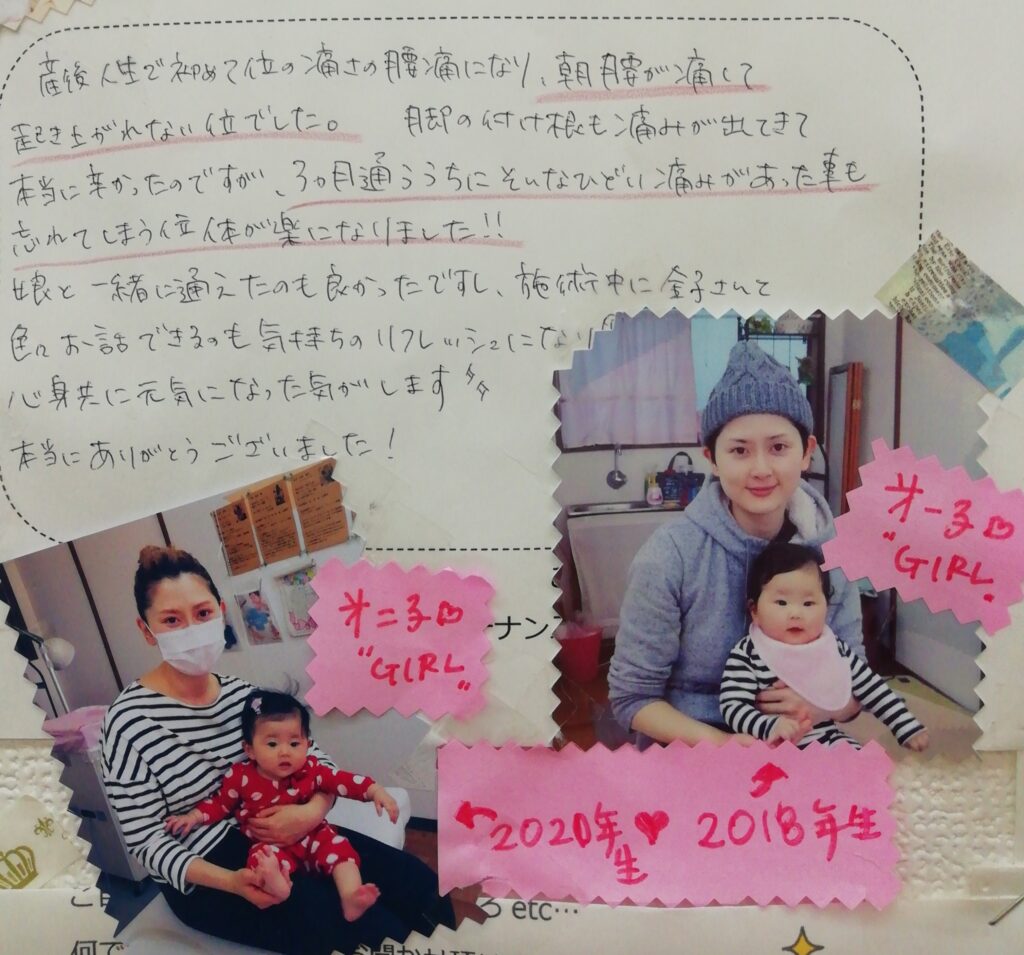 産後人生で初めて位の痛さの腰痛になり、朝腰が痛くて
起き上がれない位でした。 脚の付け根も痛みが出てきて
本当に辛かったのですが、3ヵ月通ううちにそんなひどい痛みがあった事も
忘れてしまう位体が楽になりました!!
娘と一緒に通えたのも良かったですし、施術中に金子さんと
色々お話できるのも気持ちのリフレッシュになり
心身共に元気になった気がします
本当にありがとうございました!
才一子♡
"GIRL"
才二子♡
"GIRL"
ーナン
2020年生♥2018年生
ろ etc…
何で